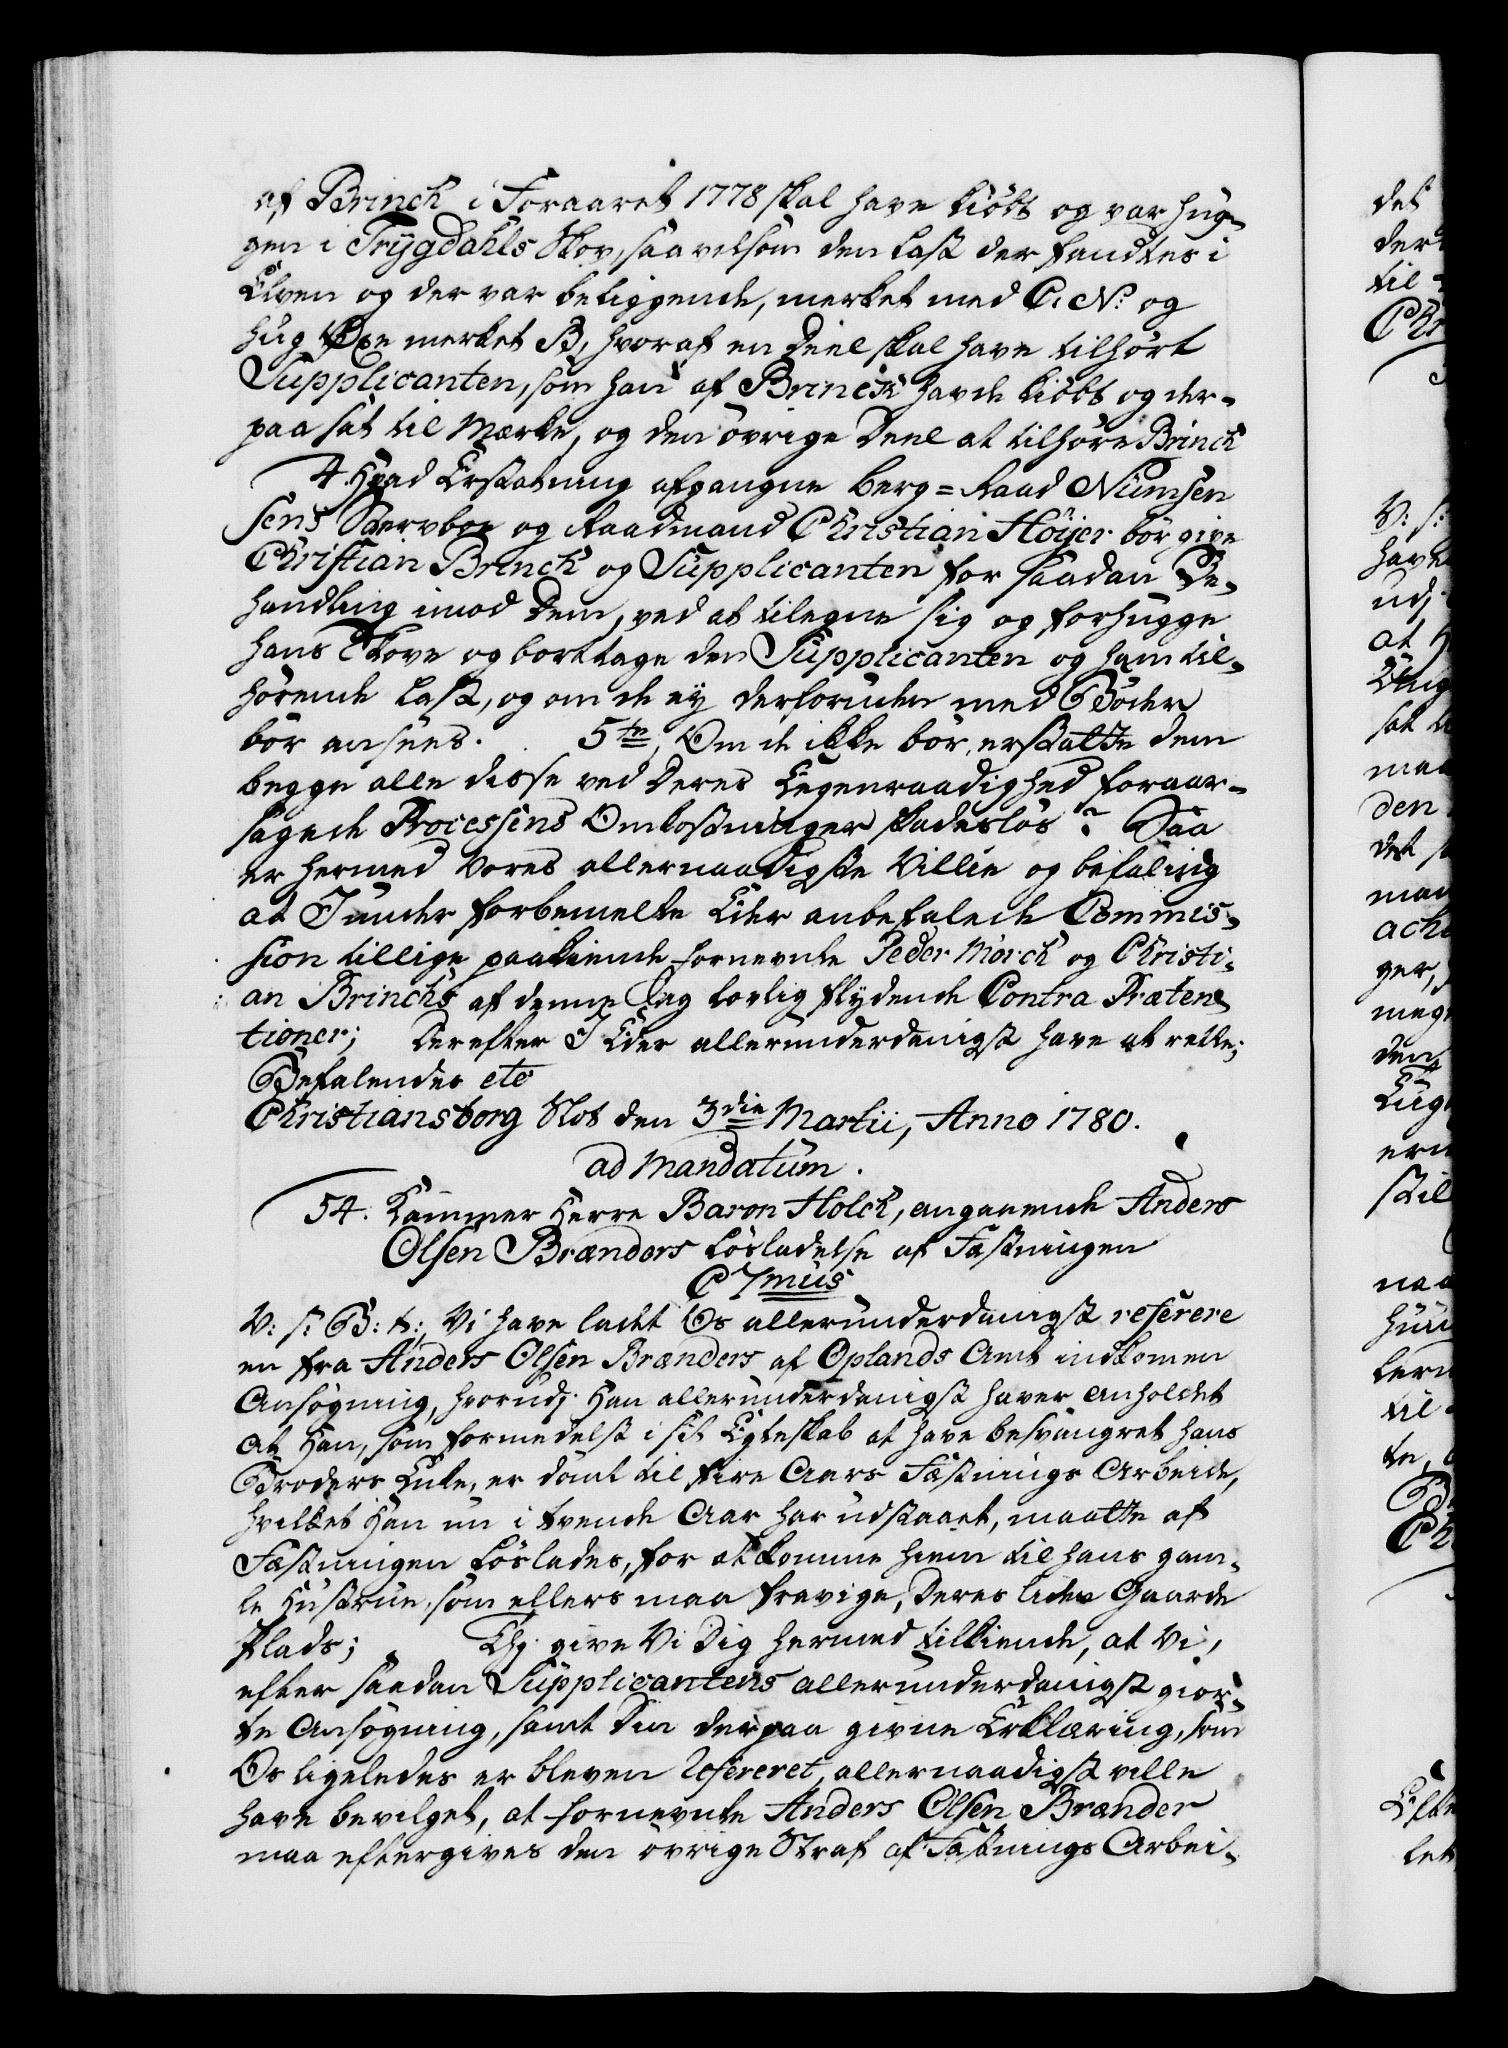 af Brinch i Foraaret 1778 skal have kiöbt og var hug-
gen i Trygdahls Skov, saavelsom den Last der fandtes i
Elven og der var beliggende, merket med C. N: og
hug Öxe merket B, hvoraf en Deel skal have tilhört
Supplicanten, som han af Brinck havde kiöbt og der-
paa sat til Mærke, og den övrige Deel at tilhöre Brinch
4. Hvad Erstatning afgangne Berg-Raad Numsen
sens Stervboe og Raadmand Christian Höijer bör give
Christian Brinch og Supplicanten for saadan Be-
handling imod Dem, ved at tilegne sig og forhugge
hans Skove og borttage den Supplicanten og ham til-
hörende Last, og om de ey derforuden med Böder
bör ansees. 5te, Om de ikke bör erstatte dem
begge alle disse ved Deres Egenraadighed foraar-
sagede Processens Omkostninger skadeslös? Saa
er hermed Vores allernaadigste Villie og befaling
at I under forbemelte Eder anbefalede Commis-
sion tillige paakiende fornevnte Peder Mörch og Christi-
an Brinchs af denne Sag lovlig flydende Contra Præten-
tioner; Derefter I Eder allerunderdanigst have at rette;
Befalendes etc
Christiansborg Slot den 3die Martii, Anno 1780.
ad Mandatum.
54. Kammer Herre Baron Holck, angaaende Anders
Olsen Brænders Lösladelse af Fæstningen
C 7mus
V: s: G: t:, Vi have ladet Os allerunderdanigst referere
en fra Anders Olsen Brænders af Oplands Amt indkomen
Ansögning, hvorudj Han allerunderdanigst haver anholdet
at Han, som formedelst i sit Egteskab at have besvangret hans
Broders Enke, er dömt til fire Aars Fæstnings Arbeide,
hvilket Han nu i tvende Aar har udstaaet, maatte af
Fæstningen löslades, for at komme hiem til hans gam-
le Hustrue, som ellers maa fravige, Deres lidet Gaarde
Plads; Thj give Vi Dig hermed tilkiende, at Vi,
efter saadan Supplicantens allerunderdanigst gior-
te Ansögning, samt Din derpaa givne Erklæring, som
Os ligeledes er bleven refereret, allernaadigst ville
have bevilget, at fornevnte Anders Olsen Brænder
maa eftergives den övrige Straf af Fæstnings Arbei-